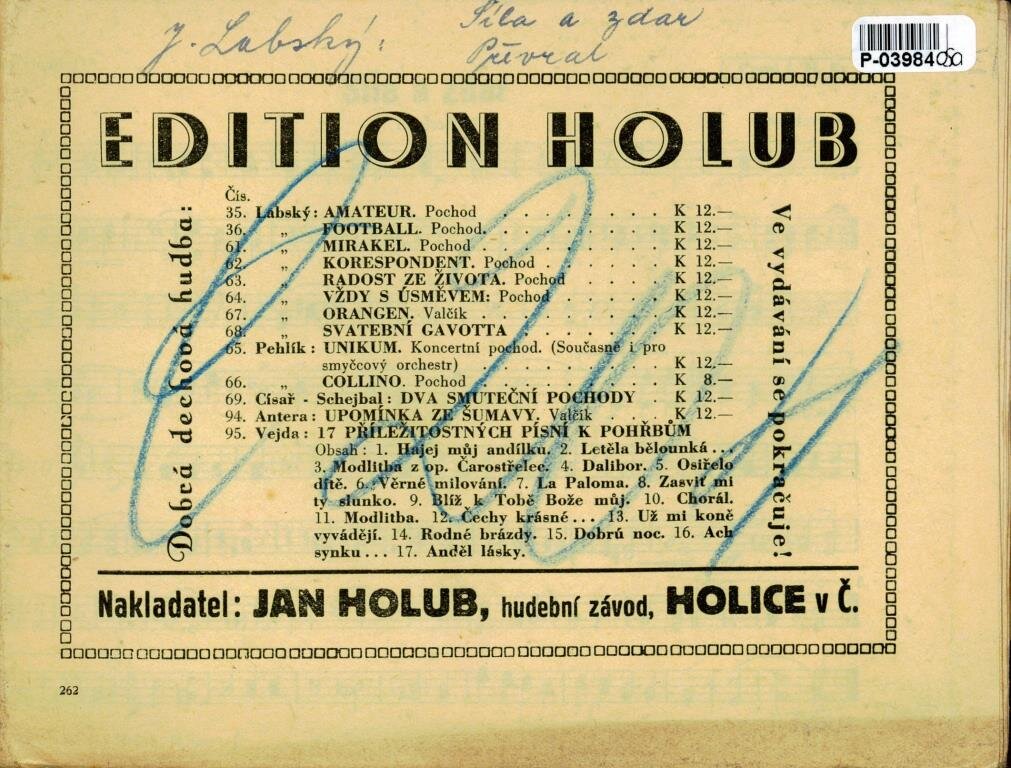 J. Labský: Síla a zdar
Převrat
P-03984
EDITION HOLUB
Dobrá dechová hudba:
Čís.
35. Labský: AMATEUR. Pochod . . . . . . . . K 12.—
36. „ FOOTBALL. Pochod. . . . . . . . K 12.—
61. „ MIRAKEL. Pochod . . . . . . . . K 12.—
62. „ KORESPONDENT. Pochod . . . . . . K 12.—
63. „ RADOST ZE ŽIVOTA. Pochod . . . . K 12.—
64. „ VŽDY S ÚSMĚVEM: Pochod . . . . . K 12.—
67. „ ORANGEN. Valčík . . . . . . . . K 12.—
68. „ SVATEBNÍ GAVOTTA . . . . . . . K 12.—
65. Pehlík: UNIKUM. Koncertní pochod. (Současně i pro
smyčcový orchestr) . . . . . . . . K 12.—
66. „ COLLINO. Pochod . . . . . . . . K 8.—
69. Císař - Schejbal: DVA SMUTEČNÍ POCHODY . K 12.—
94. Antera: UPOMÍNKA ZE ŠUMAVY. Valčík . . . K 12.—
95. Vejda: 17 PŘÍLEŽITOSTNÝCH PÍSNÍ K POHŘBŮM
Obsah: 1. Hajej můj andílku. 2. Letěla bělounká...
3. Modlitba z op. Čarostřelec. 4. Dalibor. 5. Osiřelo
dítě. 6. Věrné milování. 7. La Paloma. 8. Zasviť mi
ty slunko. 9. Blíž k Tobě Bože můj. 10. Chorál.
11. Modlitba. 12. Čechy krásné... 13. Už mi koně
vyvádějí. 14. Rodné brázdy. 15. Dobrú noc. 16. Ach
synku... 17. Anděl lásky.
Ve vydávání se pokračuje!
Nakladatel: JAN HOLUB, hudební závod, HOLICE v Č.
262